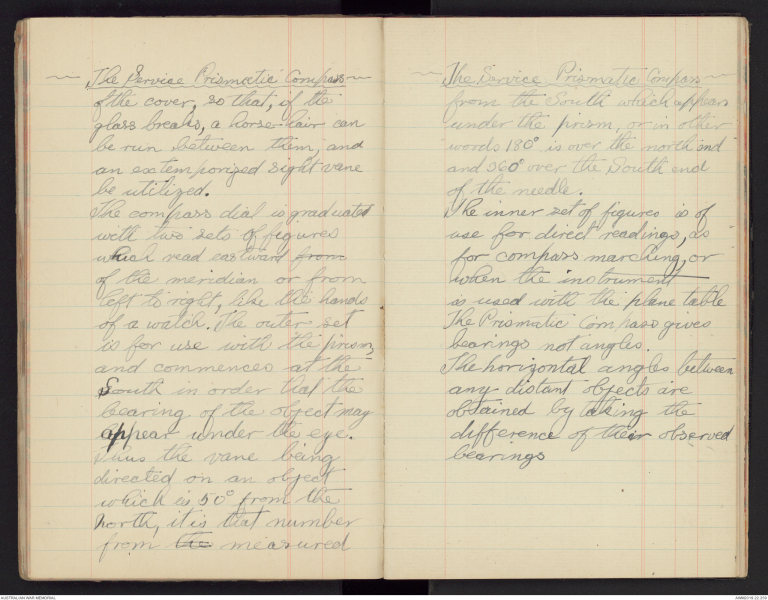 The Service Prismatic Compass
of the cover, so that, if the
glass breaks, a horse hair can
be run between them, and
an extemporized sight vane
be utilized.
The compass dial is graduated
with two sets of figures
which read eastward from
of the meridian or from
left to right, like the hands
of a watch. The outer set
is for use with the prism,
and commences at the
South in order that the
bearing of the object may
appear under the eye.
Thus the vane being
directed on an object
which is 50° from the
north, it is that number
from the measured
The Service Prismatic Compass
from the South which appears
under the prism, or in other
words 180° is over the north end
and 360° over the South end
of the needle.
The inner set of figures is of
use for direct readings, as
for compass marching, or
when the instrument
is used with the plane table
The Prismatic Compass gives
bearings not angles.
The horizontal angles between
any distant objects are
obtained by taking the
difference of their observed
bearings
AUSTRALIAN WAR MEMORIAL